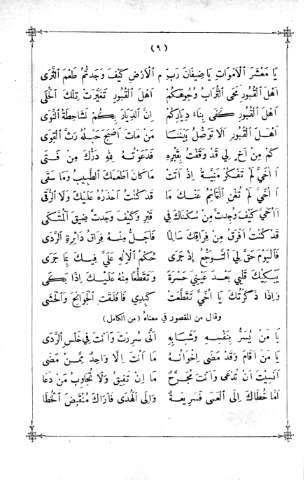 (٩)
يَا مَعْشَرَ الْأَمْوَاتِ يَا ضِيفَانَ رَبِّ م الْأَرْضِ كَيْفَ وَجَدْتُمُ طَعْمَ الثَّرَى
أَهْلَ الْقُبُورِ مَحَى التُّرَابُ وُجُوهَكُمْ أَهْلَ الْقُبُورِ تَغَيَّرَتْ تِلْكَ الْحُلَى
أَهْلَ الْقُبُورِ كَفَى بِنَأْيِ دِيَارِكُمْ إِنَّ الدِّيَارَ بِكُمْ لَشَاحِطَةُ النَّوَى
أَهْلَ الْقُبُورِ أَلَا تَوَاصُلَ بَيْنَنَا مَنْ مَاتَ أَصْبَحَ حَبْلُهُ رَثَّ الْقُوَى
كَمْ مِنْ أَخٍ لِي قَدْ وَقَفْتُ بِقَبْرِهِ فَدَعَوْتُهُ لِلَّهِ دَرُّكَ مِنْ فَتَى
أَأُخَيَّ لَمْ تَقِكَ مَنِيَّةٌ إِذْ أَتَتْ مَا كَانَ أَطْعَمَكَ الطَّبِيبُ وَمَا سَقَى
أَأُخَيَّ لَمْ تُغْنِ التَّمَائِمُ عَنْكَ مَا قَدْ كُنْتُ أَحْذَرُهُ عَلَيْكَ وَلَا الرُّقَى
أَأُخَيَّ كَيْفَ وَجَدْتَ مِنْ سَكَنَاكَ فِي قَبْرٍ وَكَيْفَ وَجَدْتَ ضِيقَ
قَدْ كُنْتُ أَفْرَقُ مِنْ فِرَاقِكَ سَالِمًا فَأَجَلُّ مِنْهُ فِرَاقُ دَائِرَةِ الرَّدَى
فَالْيَوْمَ حَقَّ لِي التَّوَجُّعُ إِذْ جَرَى حُكْمُ الْإِلَهِ عَلَيَّ فِيكَ بِمَا جَرَى
يَبْكِيكَ قَلْبِي بَعْدَ عَيْنِي حَسْرَةً وَتَقَطُّعًا مِنْهُ عَلَيْكَ إِذَا بَكَى
وَإِذَا ذَكَرْتُكَ يَا أُخَيَّ تَقَطَّعَتْ كَبِدِي فَأَقْلَقَتِ الْجَوَانِحَ وَالْحَشَى
وقال من المقصور في معناه (من الكامل)
يَا مَنْ يُسَرُّ بِنَفْسِهِ وَشَبَابِهِ أَنَّى سُرِرْتَ وَأَنْتَ فِي خُلَسِ الرَّدَى
يَا مَنْ أَقَامَ وَقَدْ مَضَى إِخْوَانُهُ مَا أَنْتَ إِلَّا وَاحِدٌ مِمَّنْ مَضَى
أَنَسِيتَ أَنْ تُدْعَى وَأَنْتَ مُحَشْرِجٌ مَا إِنْ تُفِيقُ وَلَا تُجَاوِبُ مَنْ دَعَا
أَمَّا خُطَاكَ إِلَى الْعَمَى فَسَرِيعَةٌ وَإِلَى الْهُدَى فَأَرَاكَ مُنْقَبِضَ الْخُطَا